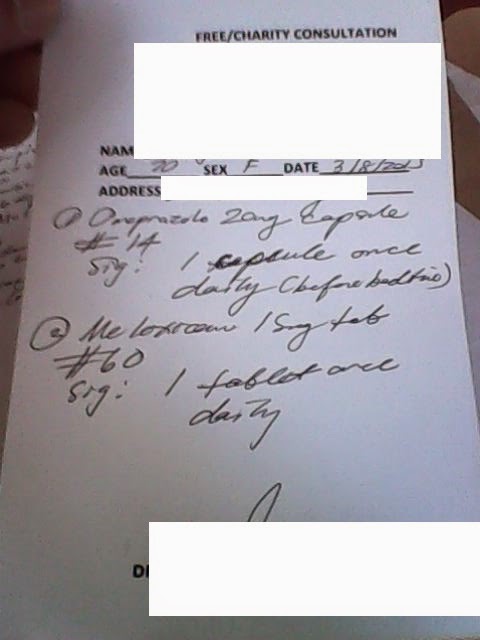 FREE/CHARITY CONSULTATION
NAM
AGE 70 SEX F DATE 3/8/2013
ADDRESS
① Omeprazole 20mg capsule
#14
Sig: 1 capsule once
daily (before bedtime)
② Meloxicam 15mg tab
#60
Sig: 1 tablet once
daily